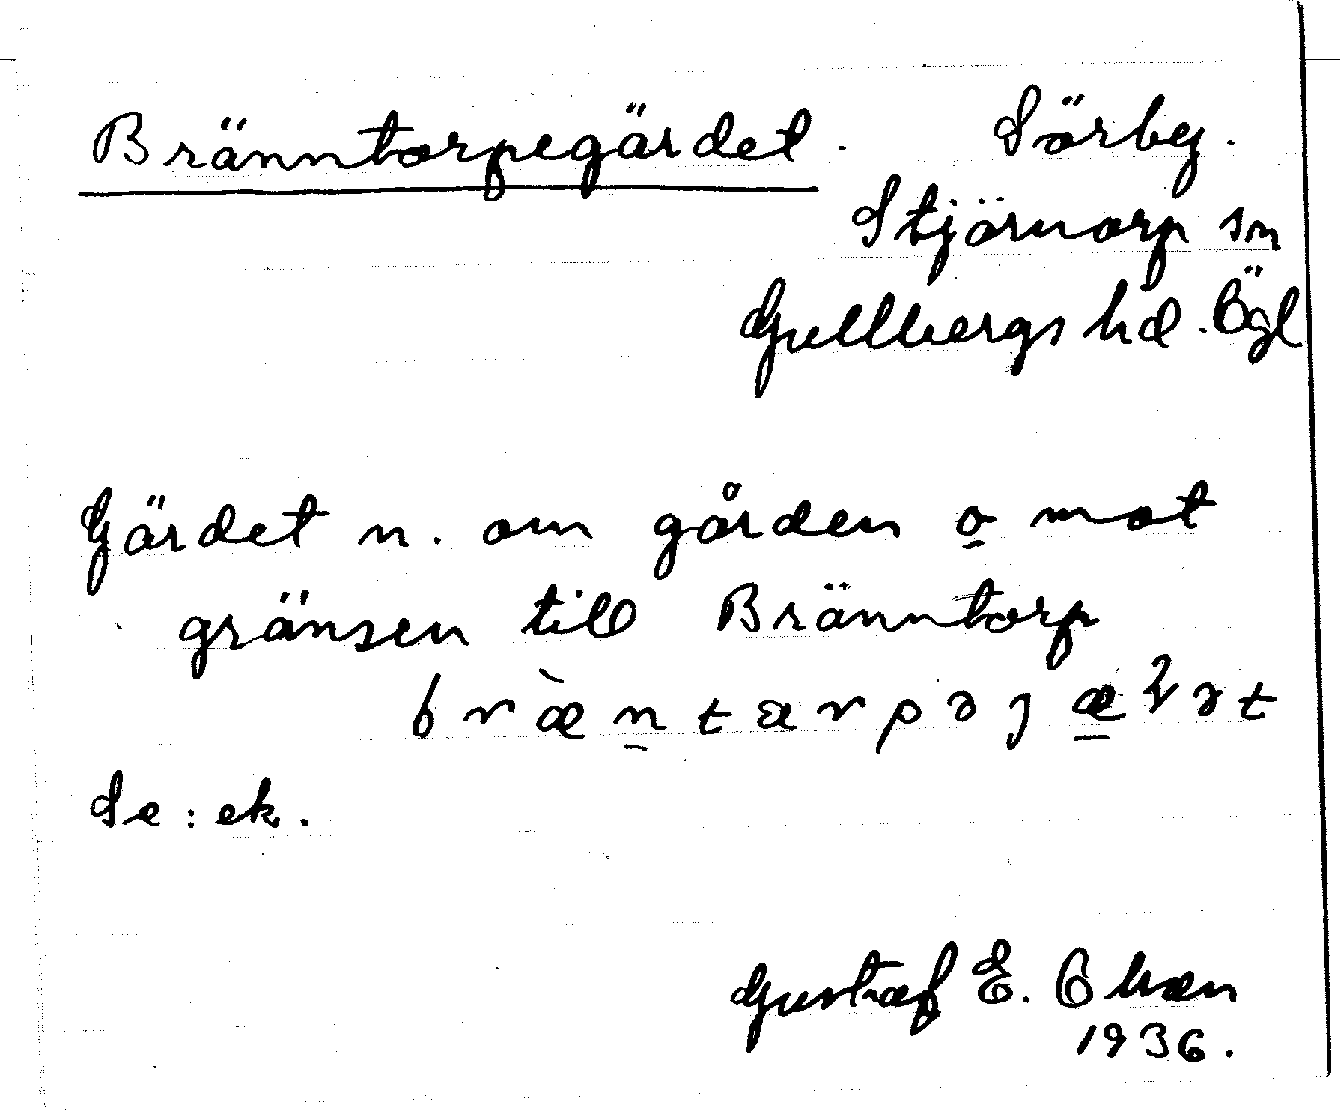 Bränntorpegärdet. Sörby.
Stjärnorp sn
Gullbergs hd. Ögl
Gärdet n. om gården o mot
gränsen till Bränntorp
Se: ek.
Gustaf E.
1936.